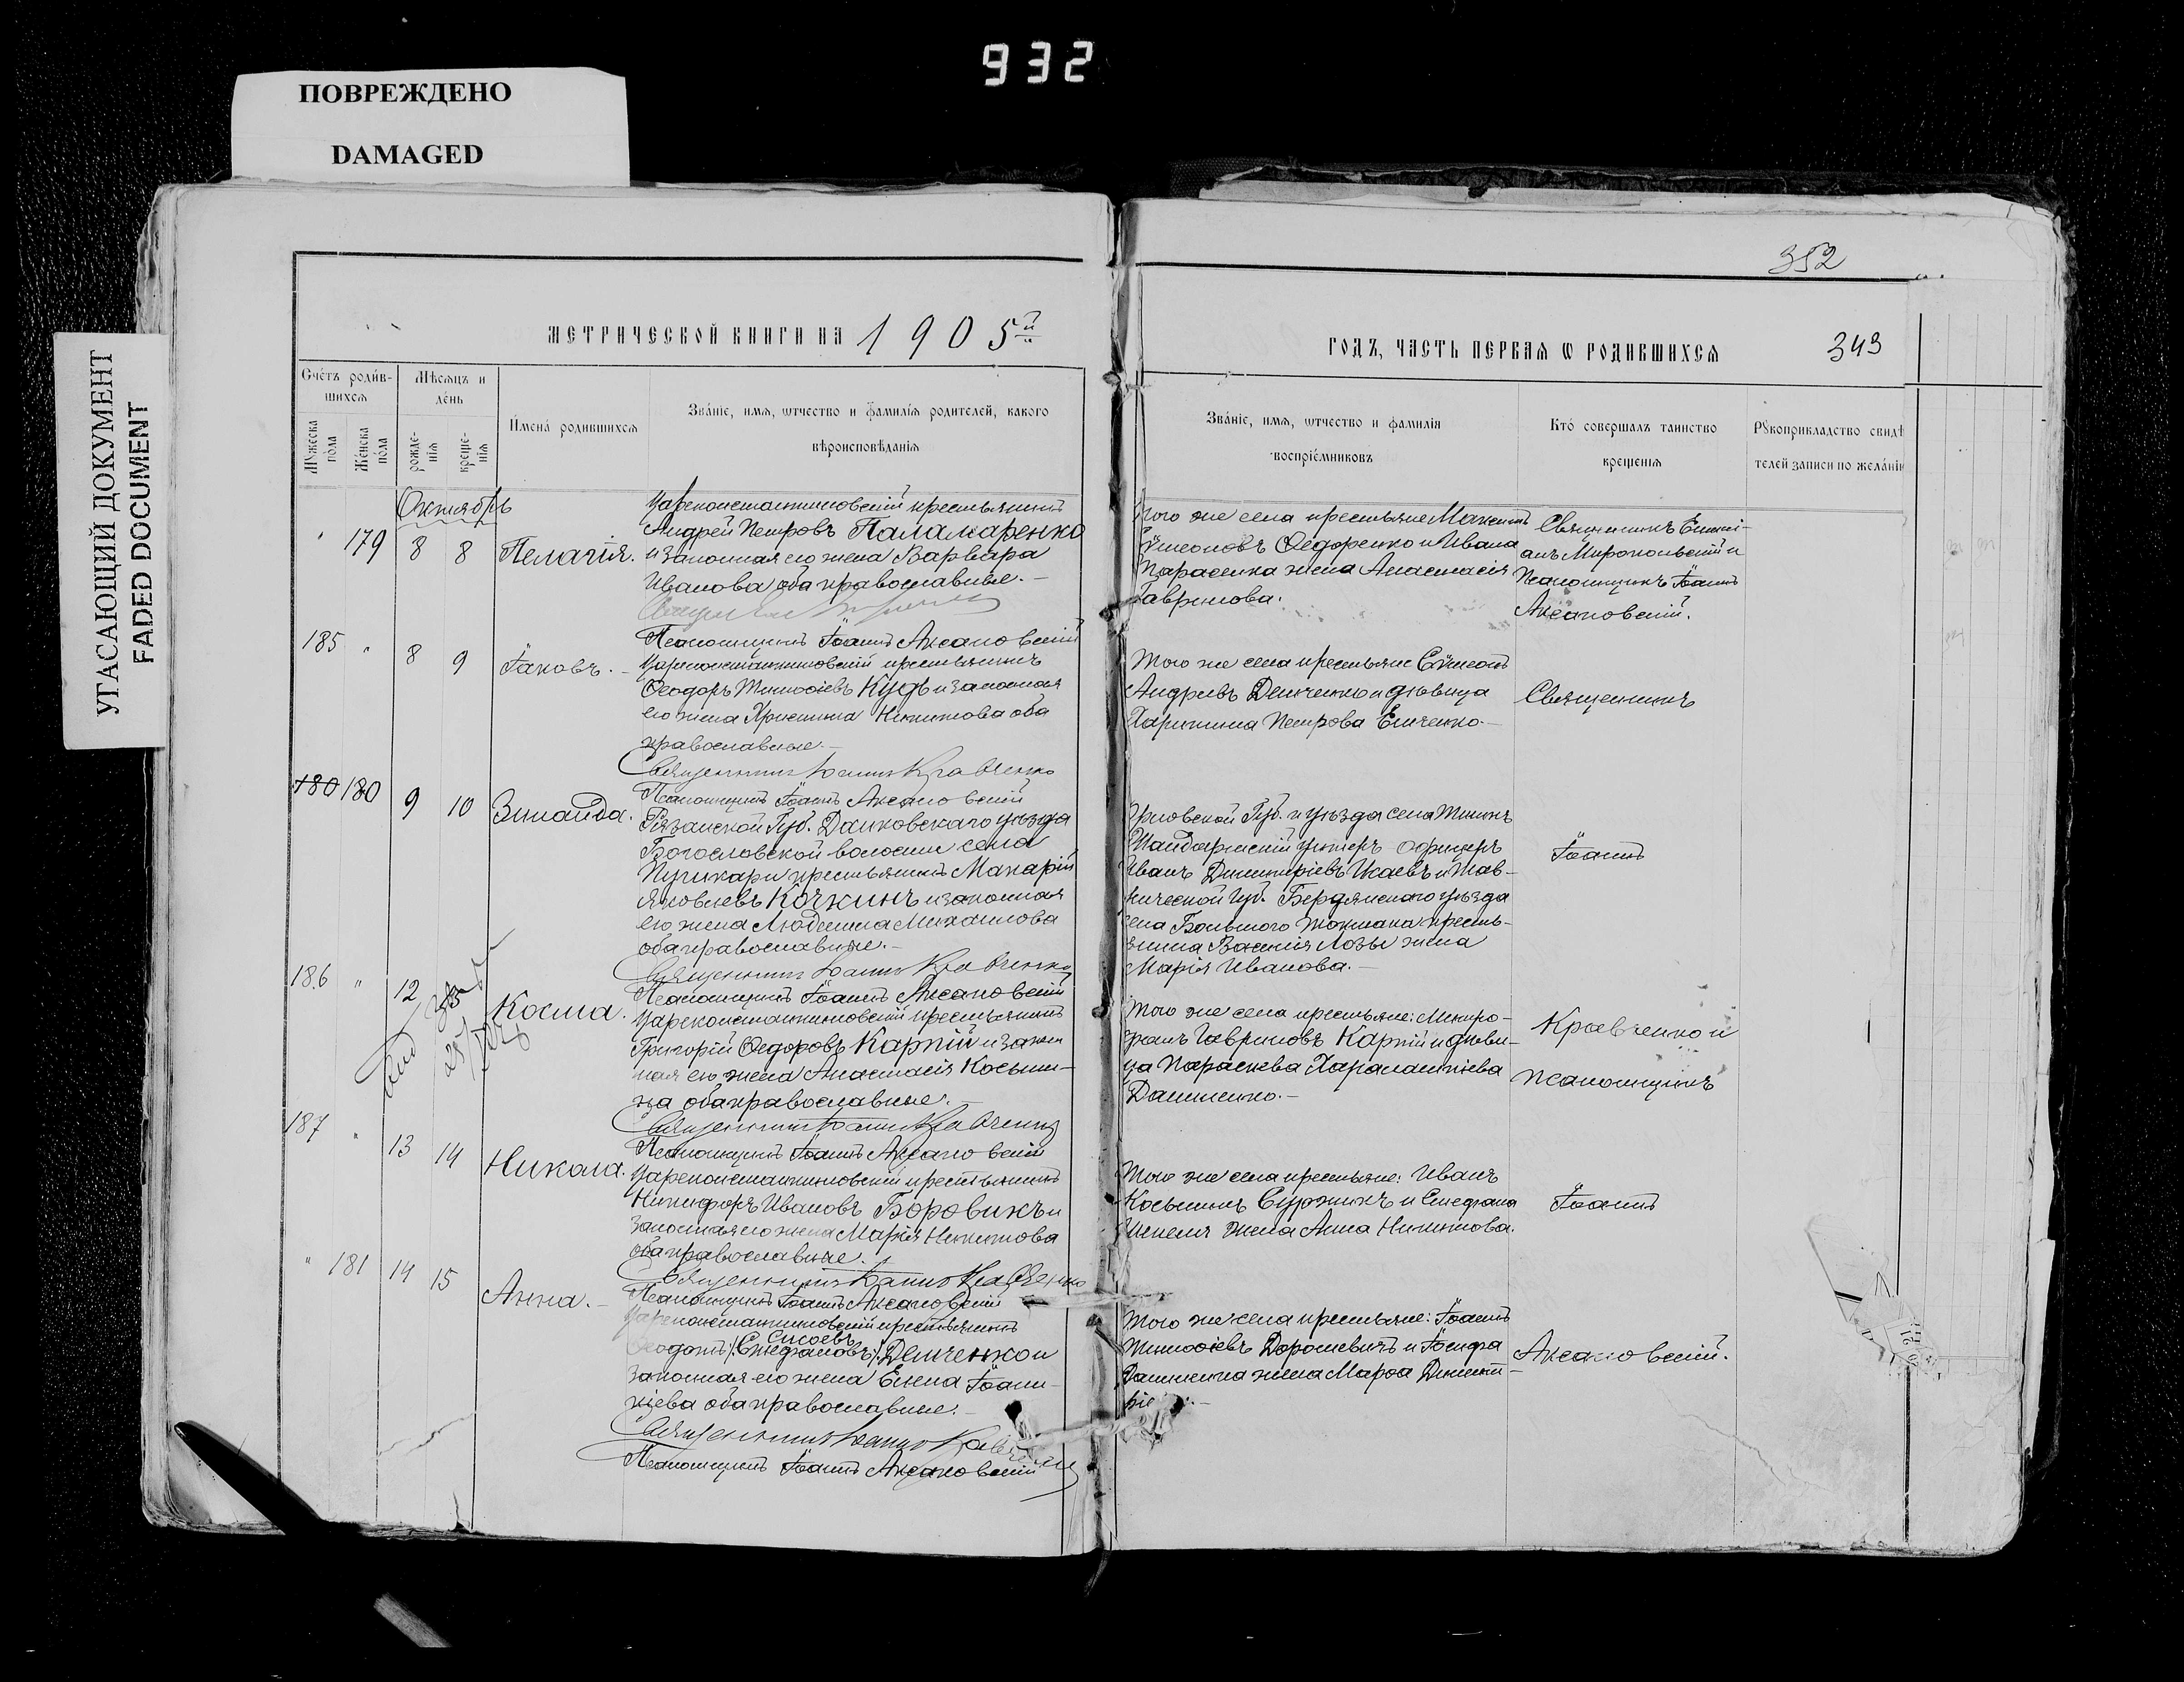 932
ПОВРЕЖДЕНО
DAMAGED
УГАСАЮЩИЙ ДОКУМЕНТ
FADED DOCUMENT
МЕТРИЧЕСКОЙ КНИГИ НА 1905й
Счетъ родив-
шихся
Мужеска
пола
Женска
пола
Мѣсяцъ и
день
рожде-
нія
креще-
нія
Имена родившихся
Званіе, имя, ѡтчество и фамилія родителей, какого
вѣроисповѣданія
Октябрь
179 8 8 Пелагія.
Цареконстантиновскій крестьянинъ
Андрей Петровъ Паламаренко
и законная его жена Варвара
Иванова оба православные.-
Псаломщикъ Іоаннъ Аксановскій
185 " 8 9 Іаковъ.-
Цареконстантиновскій крестьянинъ
Ѳеодоръ Тимоѳіевъ Кудь и законная
его жена Христина Никитова оба
православные.-
Священникъ Іоаннъ Кравченко
Псаломщикъ Іоаннъ Аксановскій
180 180 9 10 Зинаида.
Рязанской Губ. Данковскаго уѣзда
Богословской волости села
крестьянинъ Макарій
Яковлевъ Кочкинъ и законная
его жена Людмила Михаилова
оба православные.-
Священникъ Іоаннъ Кравченко
Псаломщикъ Іоаннъ Аксановскій
186 " 12 Косма.
Цареконстантиновскій крестьянинъ
Григорій Ѳедоровъ Карпій и закон
ная его жена Анастасія Косьми-
на оба православные.-
Священникъ Іоаннъ Кравченко
Псаломщикъ Іоаннъ Аксановскій
187 " 13 14 Никола.
Цареконстантиновскій крестьянинъ
Никифоръ Ивановъ Боровикъ и
законная его жена Марія Никитова
оба православные.-
Священникъ Іоаннъ Кравченко
Псаломщикъ Іоаннъ Аксановскій
" 181 14 15 Анна.-
Цареконстантиновскій крестьянинъ
Сисоевъ
Ѳеодотъ /:Стефановъ:/ Демченко и
законная его жена Елена Іоанн-
кіева оба православные.-
Священникъ Іоаннъ Кравченко
Псаломщикъ Іоаннъ Аксановскій
352
ГОДЪ, ЧАСТЬ ПЕРВАЯ Ѡ РОДИВШИХСЯ 343
Званіе, имя, ѡтчество и фамилія
воспріемниковъ
Кто совершалъ таинство
крещенія
Рꙋкоприкладство свидѣ
телей записи по желанію
Того же села крестьяне Максимъ
Ѳедоренко и Ивана
жена Анастасія
Гаврилова.
Священникъ
Миропольскій и
Псаломщикъ Іоаннъ
Аксановскій.
Того же села крестьяне Сѵмеонъ
Андреевъ Демченко и дѣвица
Харитина Петрова
Священникъ
Орловской Губ. и уѣзда села
унтеръ-офицеръ
Иванъ Димитріевъ Исаевъ и Тав-
рической Губ. Бердянскаго уѣзда
села Большого Токмака кресть-
янина Василія Лозы жена
Марія Иванова.-
Іоаннъ
Того же села крестьяне: Митро-
фанъ Гавриловъ Карпій и дѣви-
ца Параскева Харалампіева
Даниленко.-
Кравченко и
псаломщикъ
Того же села крестьяне: Иванъ
Косьминъ Суржикъ и Стефана
жена Анна Никитова.
Іоаннъ
Того же села крестьяне: Іоаннъ
Тимоѳіевъ Дорошевичъ и Іосифа
жена Марѳа Димит-
Аксановскій.